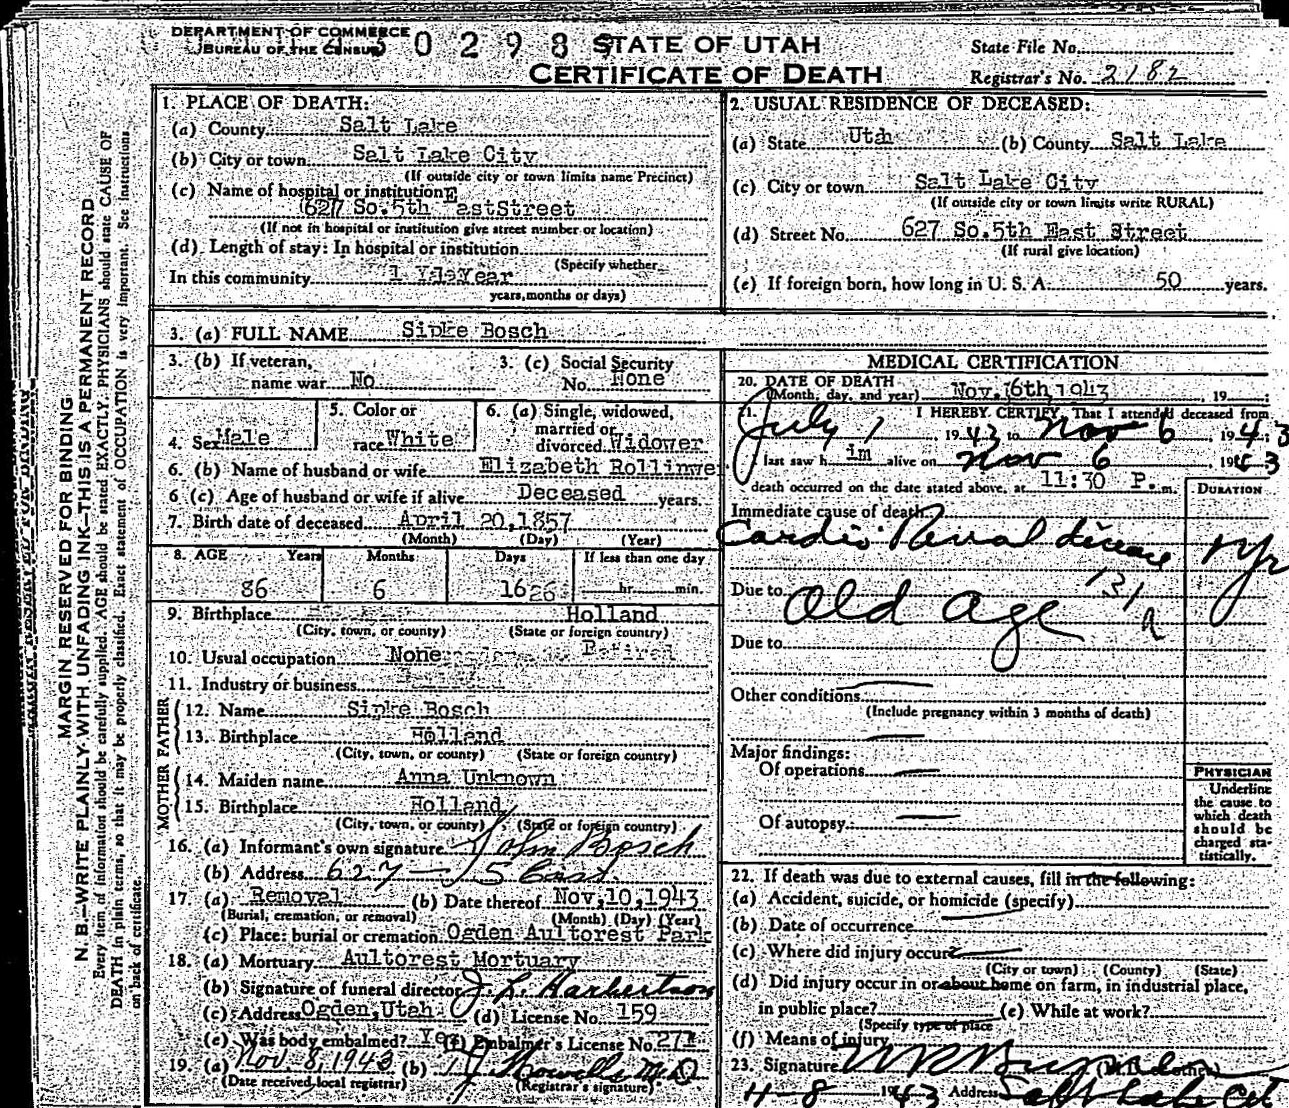 DEPARTMENT OF COMMERCE
BUREAU OF THE CENSUS
STATE OF UTAH
CERTIFICATE OF DEATH
State File No.
Registrar's No. 2182
MARGIN RESERVED FOR BINDING
N. B.—WRITE PLAINLY WITH UNFADING INK—THIS IS A PERMANENT RECORD
Every item of information should be carefully supplied. AGE should be stated EXACTLY. PHYSICIANS should state CAUSE OF
DEATH in plain terms, so that it may be properly classified. Exact statement of OCCUPATION is very important. See instructions
on back of certificate.
1. PLACE OF DEATH:
(a) County Salt Lake
(b) City or town Salt Lake City
(If outside city or town limits name Precinct)
(c) Name of hospital or institution E
627 So. 5th astStreet
(If not in hospital or institution give street number or location)
(d) Length of stay: In hospital or institution
(Specify whether
In this community 1 Year
years, months or days)
2. USUAL RESIDENCE OF DECEASED:
(a) State Utah (b) County Salt Lake
(c) City or town Salt Lake City
(If outside city or town limits write RURAL)
(d) Street No. 627 So. 5th East Street
(If rural give location)
(e) If foreign born, how long in U. S. A. 50 years.
3. (a) FULL NAME Sipke Bosch
3. (b) If veteran,
name war No
3. (c) Social Security
No. None
4. Sex Male
5. Color or
race White
6. (a) Single, widowed,
married or
divorced Widower
6. (b) Name of husband or wife Elizabeth
6 (c) Age of husband or wife if alive Deceased years.
7. Birth date of deceased April 20, 1857
(Month) (Day) (Year)
8. AGE Years Months Days If less than one day
86 6 16 hr. min.
9. Birthplace Holland
(City, town, or county) (State or foreign country)
10. Usual occupation None Retired
11. Industry or business
FATHER
12. Name Sipke Bosch
13. Birthplace Holland
(City, town, or county) (State or foreign country)
MOTHER
14. Maiden name Anna Unknown
15. Birthplace Holland
(City, town, or county) (State or foreign country)
16. (a) Informant's own signature John Bosch
(b) Address 627 — 5 East
17 (a) Removal (b) Date thereof Nov. 10, 1943
(Burial, cremation, or removal) (Month) (Day) (Year)
(c) Place: burial or cremation Ogden Aultorest Park
18. (a) Mortuary Aultorest Mortuary
(b) Signature of funeral director J. L. Harbertson
(c) Address Ogden, Utah (d) License No. 159
(e) Was body embalmed? Yes (f) Embalmer's License No.
19. (a) Nov. 8, 1943 (b) M D
(Date received local registrar) (Registrar's signature)
MEDICAL CERTIFICATION
20. DATE OF DEATH
(Month, day, and year) Nov. 6th 1943, 19
21. I HEREBY CERTIFY, That I attended deceased from
July 1, 1943 to Nov 6 1943
I last saw him alive on Nov 6 1943
death occurred on the date stated above, at 11:30 P. m.
DURATION
Immediate cause of death
Cardio Renal disease 1 yr
131
a
Due to Old Age
Due to
Other conditions
(Include pregnancy within 3 months of death)
Major findings:
Of operations
Of autopsy
PHYSICIAN
Underline
the cause to
which death
should be
charged sta-
tistically.
22. If death was due to external causes, fill in the following:
(a) Accident, suicide, or homicide (specify)
(b) Date of occurrence
(c) Where did injury occur?
(City or town) (County) (State)
(d) Did injury occur in or about home on farm, in industrial place,
in public place? (e) While at work?
(Specify type of place
(f) Means of injury
23. Signature (M.D. or other)
11-8 1943 Address Salt Lake City